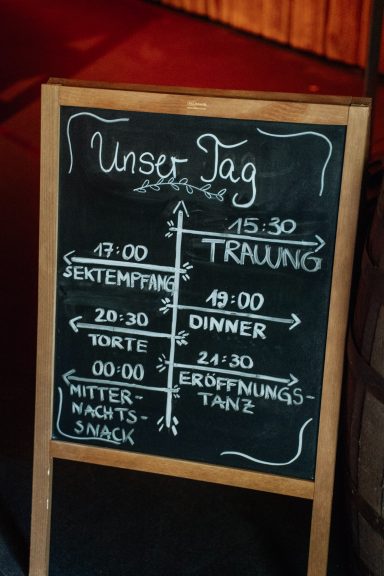 Unser Tag
15:30
TRAUUNG
17:00
SEKTEMPFANG
19:00
DINNER
20:30
TORTE
21:30
ERÖFFNUNGS-
TANZ
00:00
MITTER-
NACHTS-
SNACK